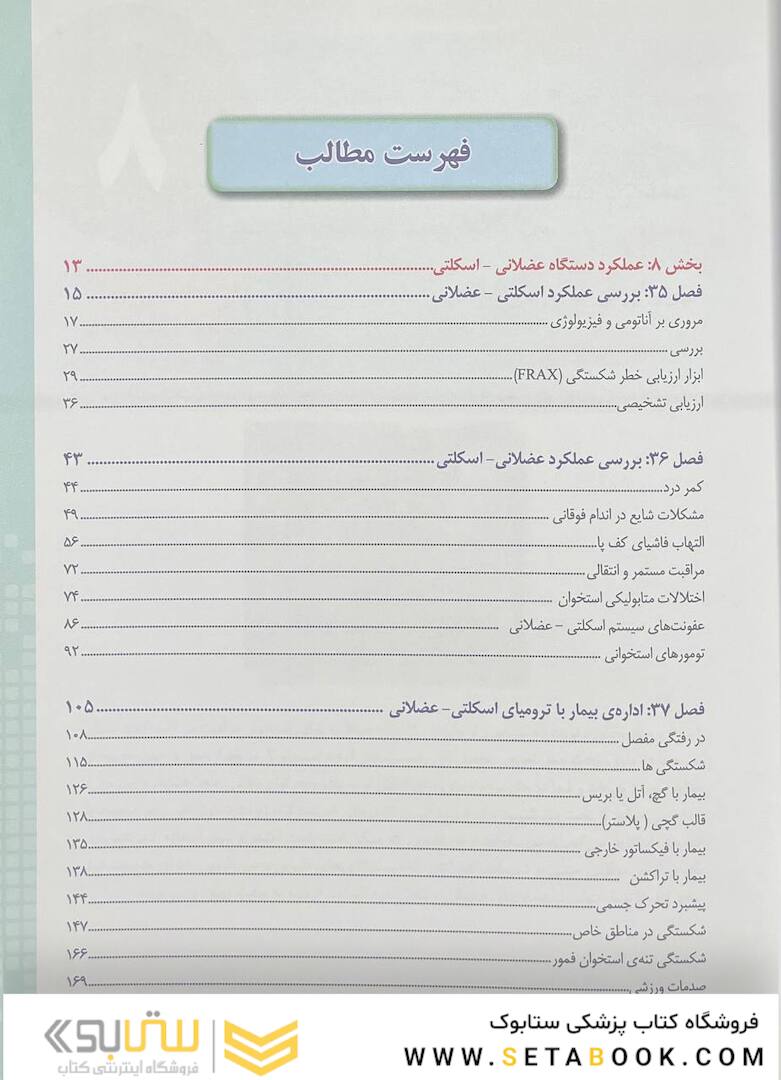 ۸
فهرست مطالب
بخش ۸: عملکرد دستگاه عضلانی – اسکلتی ۱۳
فصل ۳۵: بررسی عملکرد اسکلتی – عضلانی ۱۵
مروری بر آناتومی و فیزیولوژی ۱۷
بررسی ۲۷
ابزار ارزیابی خطر شکستگی (FRAX) ۲۹
ارزیابی تشخیصی ۳۶
فصل ۳۶: بررسی عملکرد عضلانی – اسکلتی ۴۳
کمر درد ۴۴
مشکلات شایع در اندام فوقانی ۴۹
التهاب فاشیای کف پا ۵۶
مراقبت مستمر و انتقالی ۷۲
اختلالات متابولیکی استخوان ۷۴
عفونت‌های سیستم اسکلتی – عضلانی ۸۶
تومورهای استخوانی ۹۲
فصل ۳۷: اداره‌ی بیمار با ترومای اسکلتی – عضلانی ۱۰۵
در رفتگی مفصل ۱۰۸
شکستگی ها ۱۱۵
بیمار با گچ، آتل یا بریس ۱۲۶
قالب گچی ( پلاستر) ۱۲۸
بیمار با فیکساتور خارجی ۱۳۵
بیمار با تراکشن ۱۳۸
پیشبرد تحرک جسمی ۱۴۴
شکستگی در مناطق خاص ۱۴۷
شکستگی تنه‌ی استخوان فمور ۱۶۶
صدمات ورزشی ۱۶۹
فروشگاه کتاب پزشکی ستابوک
WWW.SETABOOK.COM
ستابوک
فروشگاه اینترنتی کتاب